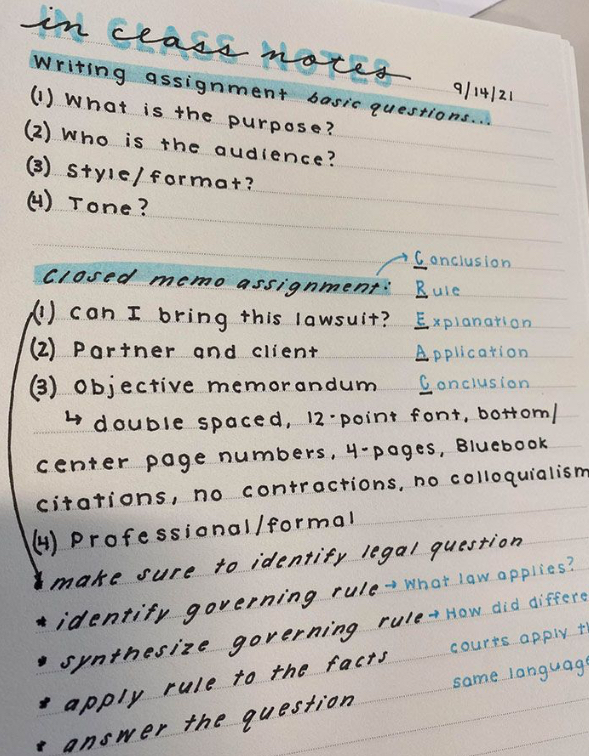 IN CLASS NOTES
in class notes
9/14/21
Writing assignment basic questions...
(1) What is the purpose?
(2) Who is the audience?
(3) Style/format?
(4) Tone?
Closed memo assignment:
(1) can I bring this lawsuit?
(2) Partner and client
(3) Objective memorandum
↳ double spaced, 12-point font, bottom/
center page numbers, 4-pages, Bluebook
citations, no contractions, no colloquialism
(4) Professional/formal
* make sure to identify legal question
* identify governing rule → What law applies?
* synthesize governing rule → How did differe
courts apply t
same language
* apply rule to the facts
* answer the question
Conclusion
Rule
Explanation
Application
Conclusion